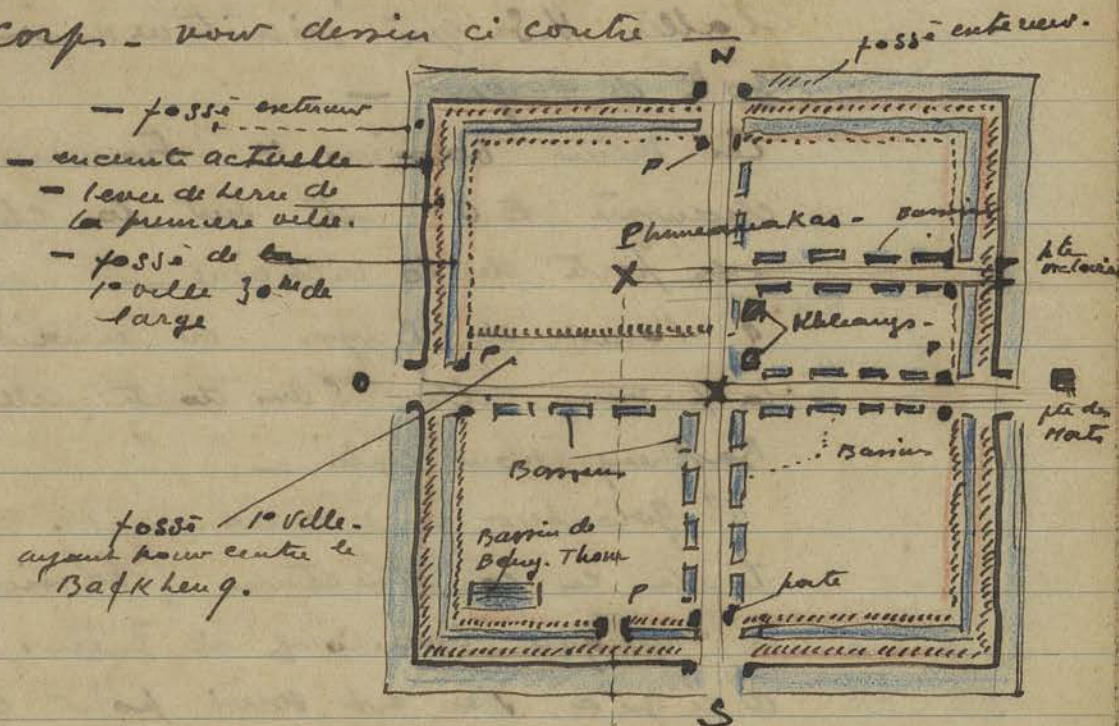 corps - voir dessin ci contre
N
fossé exterieur.
- fossé exterieur
- enceinte actuelle
- levée de terre de
la premiere ville.
- fossé de la
1e ville 30m de
large
P
Phimeanakas -
Bassins
pte
victoire
Khleangs -
P
P
O
pte des
Morts
Bassins
Bassins
fossé 1e ville -
ayant pour centre le
Bakheng.
Bassin de
Beng. Thom
P
porte
S